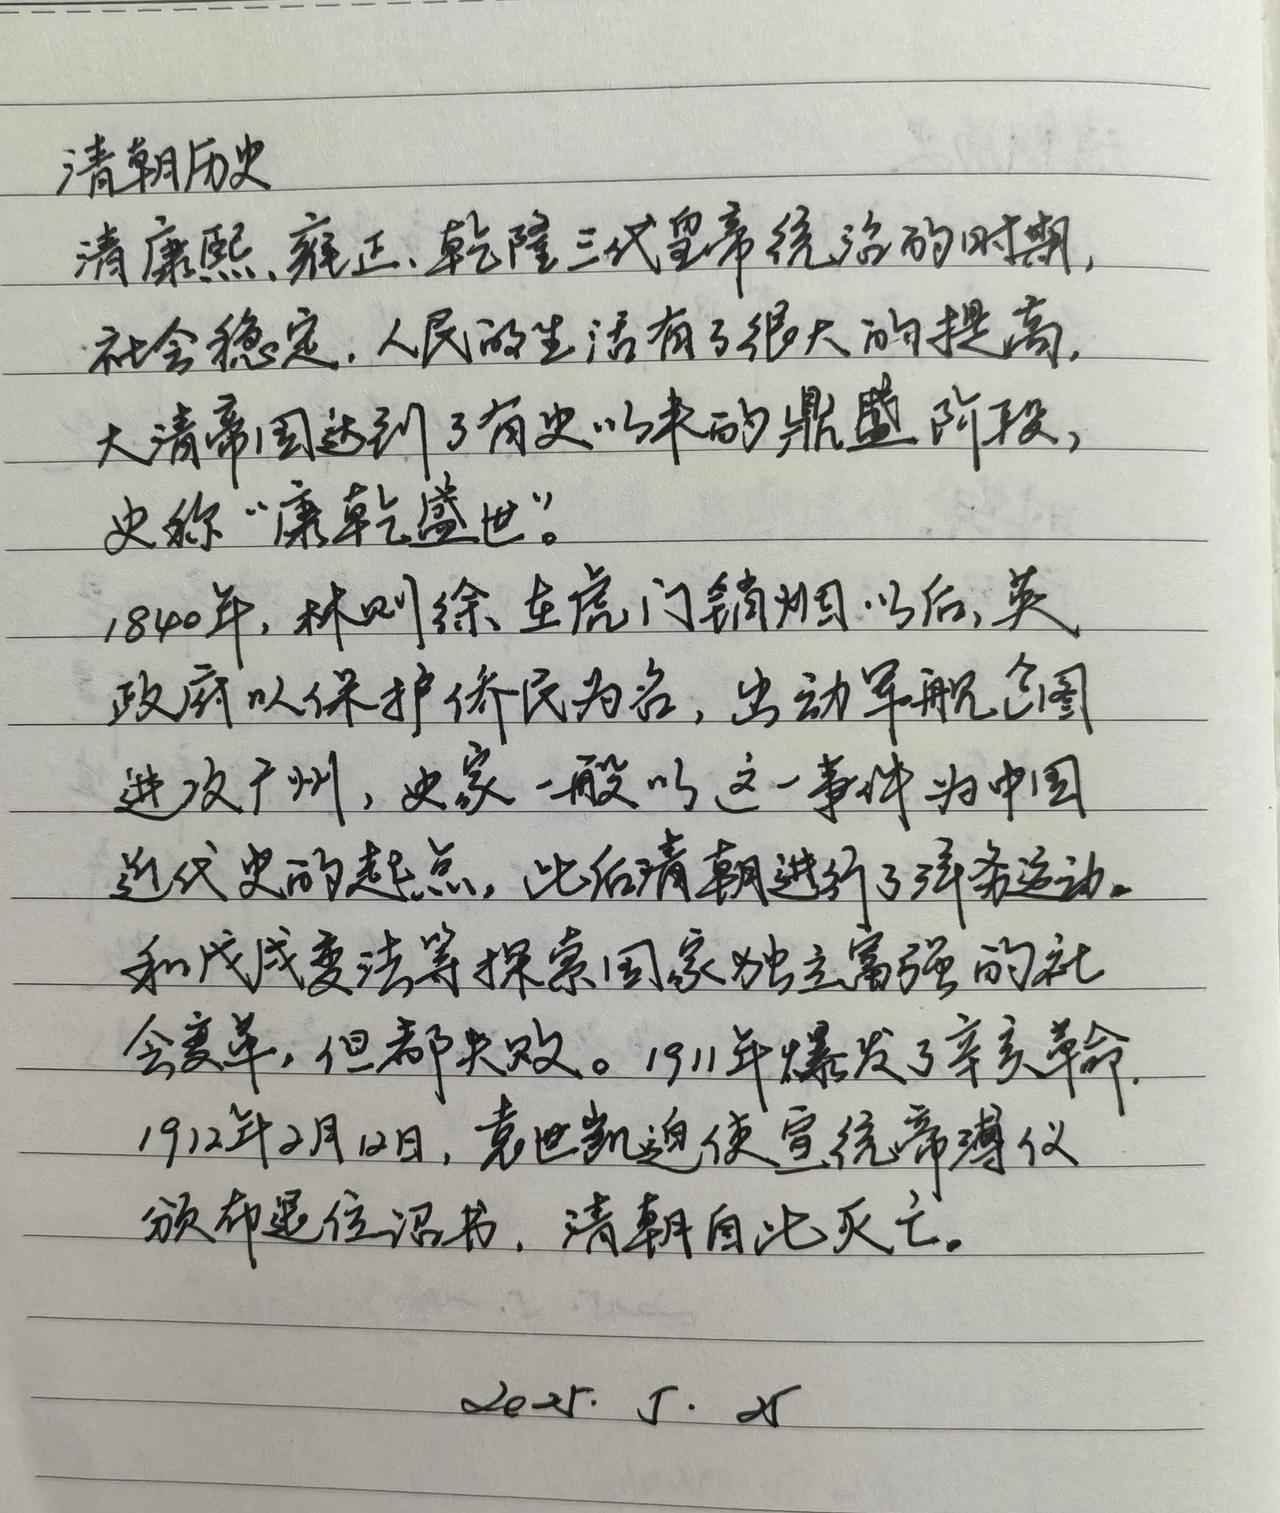 清朝历史
清康熙、雍正、乾隆三代皇帝统治的时期,
社会稳定,人民的生活有了很大的提高,
大清帝国达到了有史以来的鼎盛阶段,
史称“康乾盛世”。
1840年,林则徐在虎门销烟以后,英
政府以保护侨民为名,出动军舰企图
进攻广州,史家一般以这一事件为中国
近代史的起点,此后清朝进行了洋务运动。
和戊戌变法等探索国家独立富强的社
会变革,但都失败。1911年爆发了辛亥革命.
1912年2月12日,袁世凯迫使宣统帝溥仪
颁布退位诏书,清朝自此灭亡。
2025. 5. 25